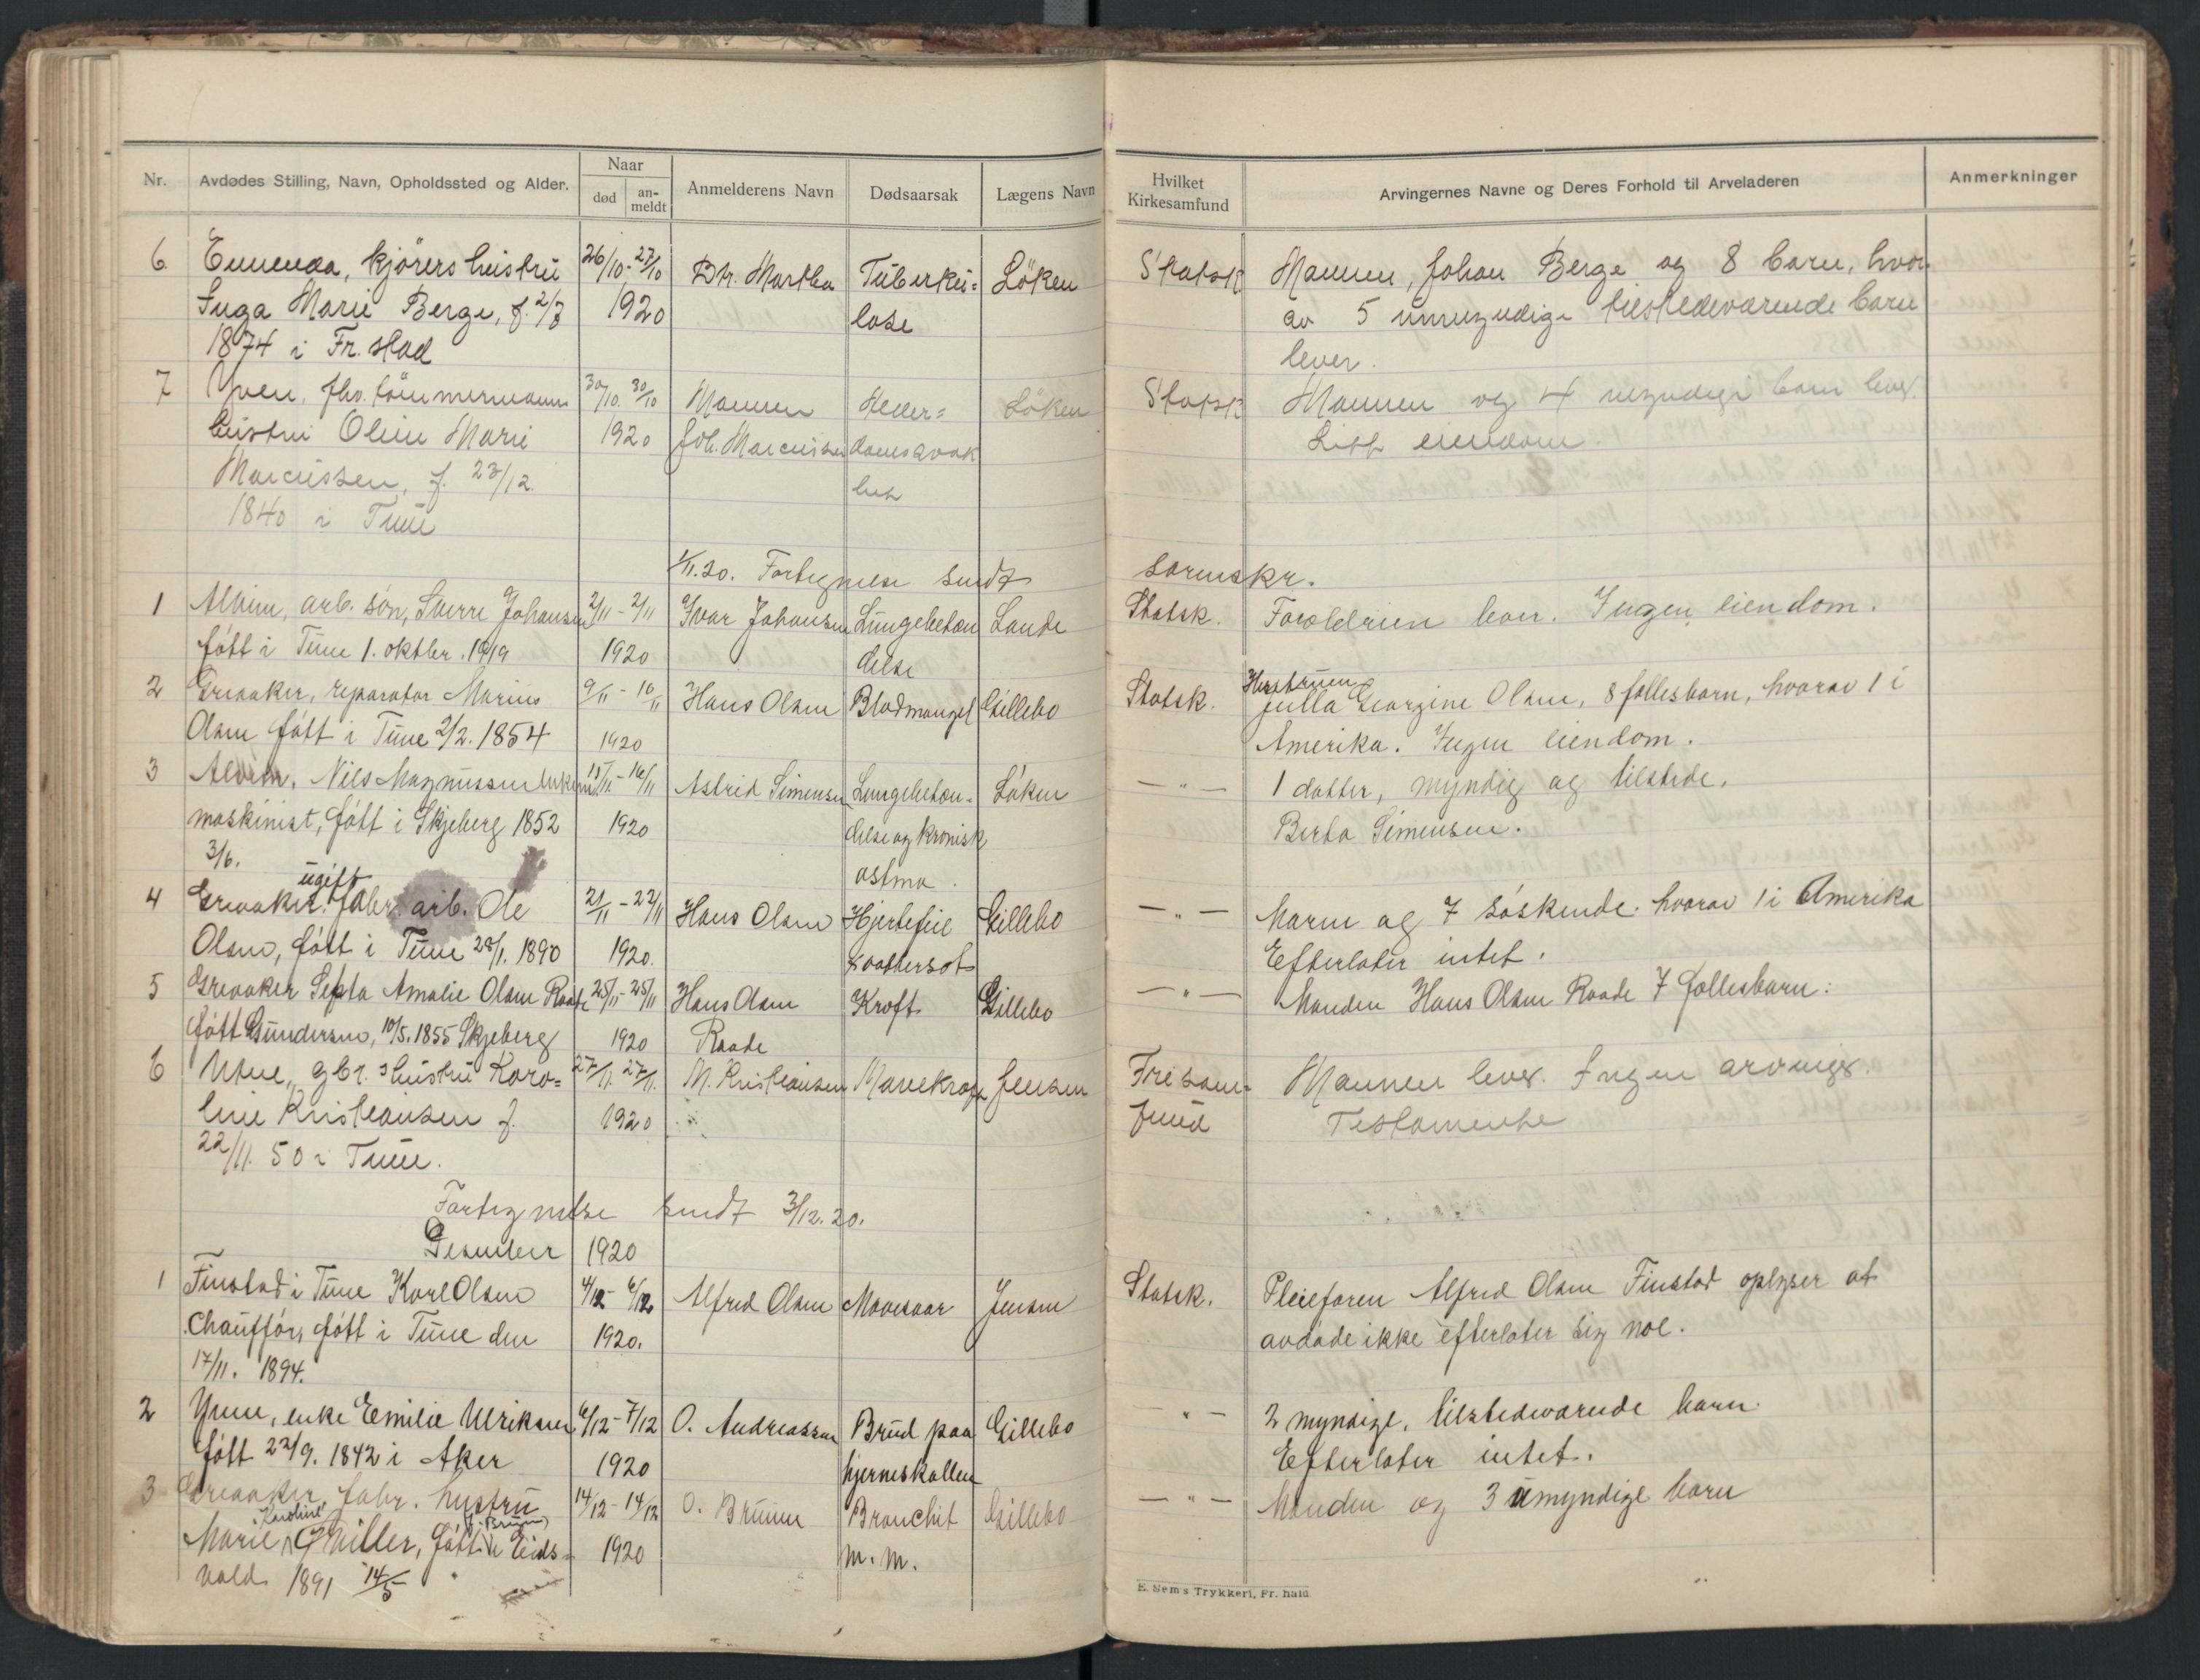 Nr.
Avdødes Stilling, Navn, Opholdssted og Alder.
Naar
død
an-
meldt
Anmelderens Navn
Dødsaarsak
Lægens Navn
Hvilket
Kirkesamfund
Arvingernes Navne og Deres Forhold til Arveladeren
Anmerkninger
6 kjörers hustru 26/10 - 27/10 Dtr. Martha Tuberku= Löken Statsk Mannen, Johan Berge og 8 barn, hvor
Inga Marie Berge, f. 2/8 1920 lose av 5 umyndige tilstedeværende barn
1874 i Fr. stad lever.
7 Yven, fhv. tömmermanns 30/10. 30/10 Mannen Alder= Löken Statsk Mannen og 4 myndige barn lever.
hustru Oline Marie 1920 Joh. Marcussen domssvak Litt eiendom
Marcussen, f. 23/12. het
1840 i Tune
1/11.20. Fortegnelse sendt sorenskr.
1 Alvim, arb. søn, Sverre Johansen 2/11 - 2/11 Ivar Johansen Lungebetæn Lande Statsk. Forældrene lever. Ingen eiendom.
født i Tune 1. oktbr. 1919 1920 delse
2 Greaaker, reparatør Marius 9/11 - 10/11 Hans Olsen Blodmangel Gillebo Statsk. Hustruen Julla Georgine Olsen, 8 fællesbarn, hvorav 1 i
Olsen født i Tune 2/2. 1854 1920 Amerika. Ingen eiendom.
3 Alvim, Nils Magnussen enkem. 15/11 - 16/11 Astrid Simensen Lungebetæn- Løken — " — 1 datter, myndig og tilstede.
maskinist, født i Skjeberg 1852 1920 delse og kronisk Berta Simensen.
3/6. astma.
4 Greaaker, ugift fabr. arb. Ole 21/11 - 22/11 Hans Olsen Hjertefeil Gillebo — " — Moren og 7 søskende. hvorav 1 i Amerika
Olsen, født i Tune 28/1. 1890 1920. vattersot Efterlater intet.
5 Greaaker Septa Amalie Olsen Raade 25/11 - 25/11 Hans Olsen Kræft Gillebo — " — Manden Hans Olsen Raade 7 fællesbarn:
født Gundersen, 10/5. 1855 Skjeberg 1920 Raade
6 Utne, gbr. s hustru Karo= 27/11. 27/11. M. Kristiansen Mavekræft Jensen Frisam- Mannen lever. Ingen arvinger.
line Kristiansen f. 1920 fund Testamente
22/11. 50 i Tune.
Fortegnelse sendt 3/12. 20.
Desember 1920
1 Finstad i Tune Karl Olsen 4/12 - 6/12 Alfred Olsen Mavesaar Jensen Statsk. Pleiefaren Alfred Olsen Finstad oplyser at
Chauffør, født i Tune den 1920. avdøde ikke efterlater sig noe.
17/11. 1894.
2 Yven, enke Emilie Ulriksen 6/12 - 7/12 O. Andreassen Brud paa Gillebo — " — 2 myndige, tilstedeværende barn.
født 22/9. 1842 i Aker 1920 hjerneskallen Efterlater intet.
3 Greaaker, fabr. hustru 14/12 - 14/12 O. Bruun Bronchit Gillebo — " — Manden og 3 umyndige barn
Marie "Karoline" Møller, (f. Bruun) født i Eids- 1920 m. m.
vold 1891 14/5
E. Sem's Trykkeri, Fr. hald.